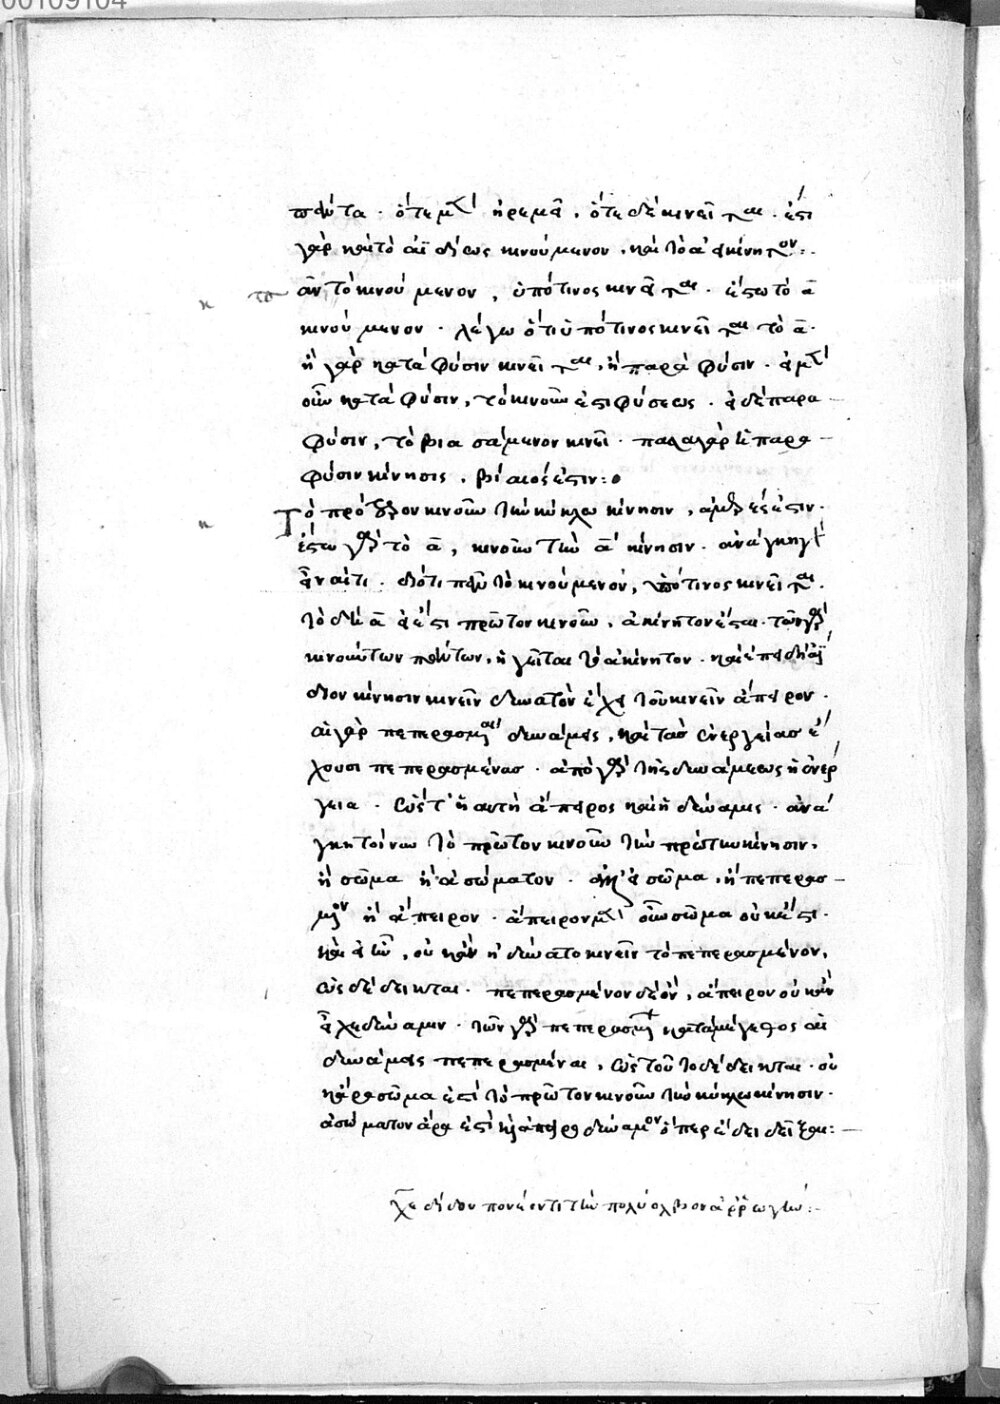 00109104
πάντα · ὁτὲ μὲν ἠρεμεῖ, ὁτὲ δὲ κινεῖται · ἔστι
γὰρ καὶ τὸ ἀϊδίως κινούμενον, καὶ τὸ ἀκίνητον :
πᾶν τὸ κινούμενον, ὑπό τινος κινεῖται · ἔστω τὸ α
κινούμενον · λέγω ὅτι ὑπό τινος κινεῖται τὸ α ·
ἢ γὰρ κατὰ φύσιν κινεῖται, ἢ παρὰ φύσιν · εἰ μὲν
οὖν κατὰ φύσιν, τὸ κινοῦν ἐστι φύσεως · εἰ δὲ παρὰ
φύσιν, τὸ βιασάμενον κινεῖ · πᾶσα γὰρ ἡ παρὰ
φύσιν κίνησις, βίαιός ἐστιν :
Τὸ πρῶτον κινοῦν τὴν κύκλω κίνησιν, ἀμερές ἐστιν ·
ἔστω γὰρ τὸ α, κινοῦν τὴν α κίνησιν · ἀνάγκη γὰρ
εἶναί τι · διότι πᾶν τὸ κινούμενον, ὑπό τινος κινεῖται ·
τὸ δὴ α εἰ ἔστι πρῶτον κινοῦν, ἀκίνητον ἔσται · τῶν γὰρ
κινούντων πάντων, ἡγεῖται τὸ ἀκίνητον · καὶ ἐπειδὴ ἀΐ
διον κίνησιν κινεῖν δυνατὸν ἔχει τοῦ κινεῖν ἄπειρον ·
αἱ γὰρ πεπερασμέναι δυνάμεις, καὶ τὰς ἐνεργείας ἔ
χουσι πεπερασμένας · ἀπὸ γὰρ τῆς δυνάμεως ἡ ἐνέρ
γεια · ὥστ' εἰ αὐτὴ ἄπειρος καὶ ἡ δύναμις · ἀνά
γκη τοίνυν τὸ πρῶτον κινοῦν τὴν πρώτην κίνησιν,
ἢ σῶμα ἢ ἀσώματον · ἀλλ' εἰ σῶμα, ἢ πεπερασ
μένον ἢ ἄπειρον · ἄπειρον μὲν οὖν σῶμα οὐκ ἔστι ·
καὶ εἰ ἦν, οὐκ ἂν ἠδύνατο κινεῖν τὸ πεπερασμένον,
ὡς δέδεικται · πεπερασμένον δὲ ὄν, ἄπειρον οὐκ ἂν
εἶχε δύναμιν · τῶν γὰρ πεπερασμένων κατὰ μέγεθος αἱ
δυνάμεις πεπερασμέναι, ὡς τοῦτο δέδεικται · οὐ
κ ἄρα σῶμα ἐστὶ τὸ πρῶτον κινοῦν τὴν κύκλω κίνησιν ·
ἀσώματον ἄρα ἐστὶ καὶ ἀπειροδύναμον ὅπερ ἔδει δεῖξαι :